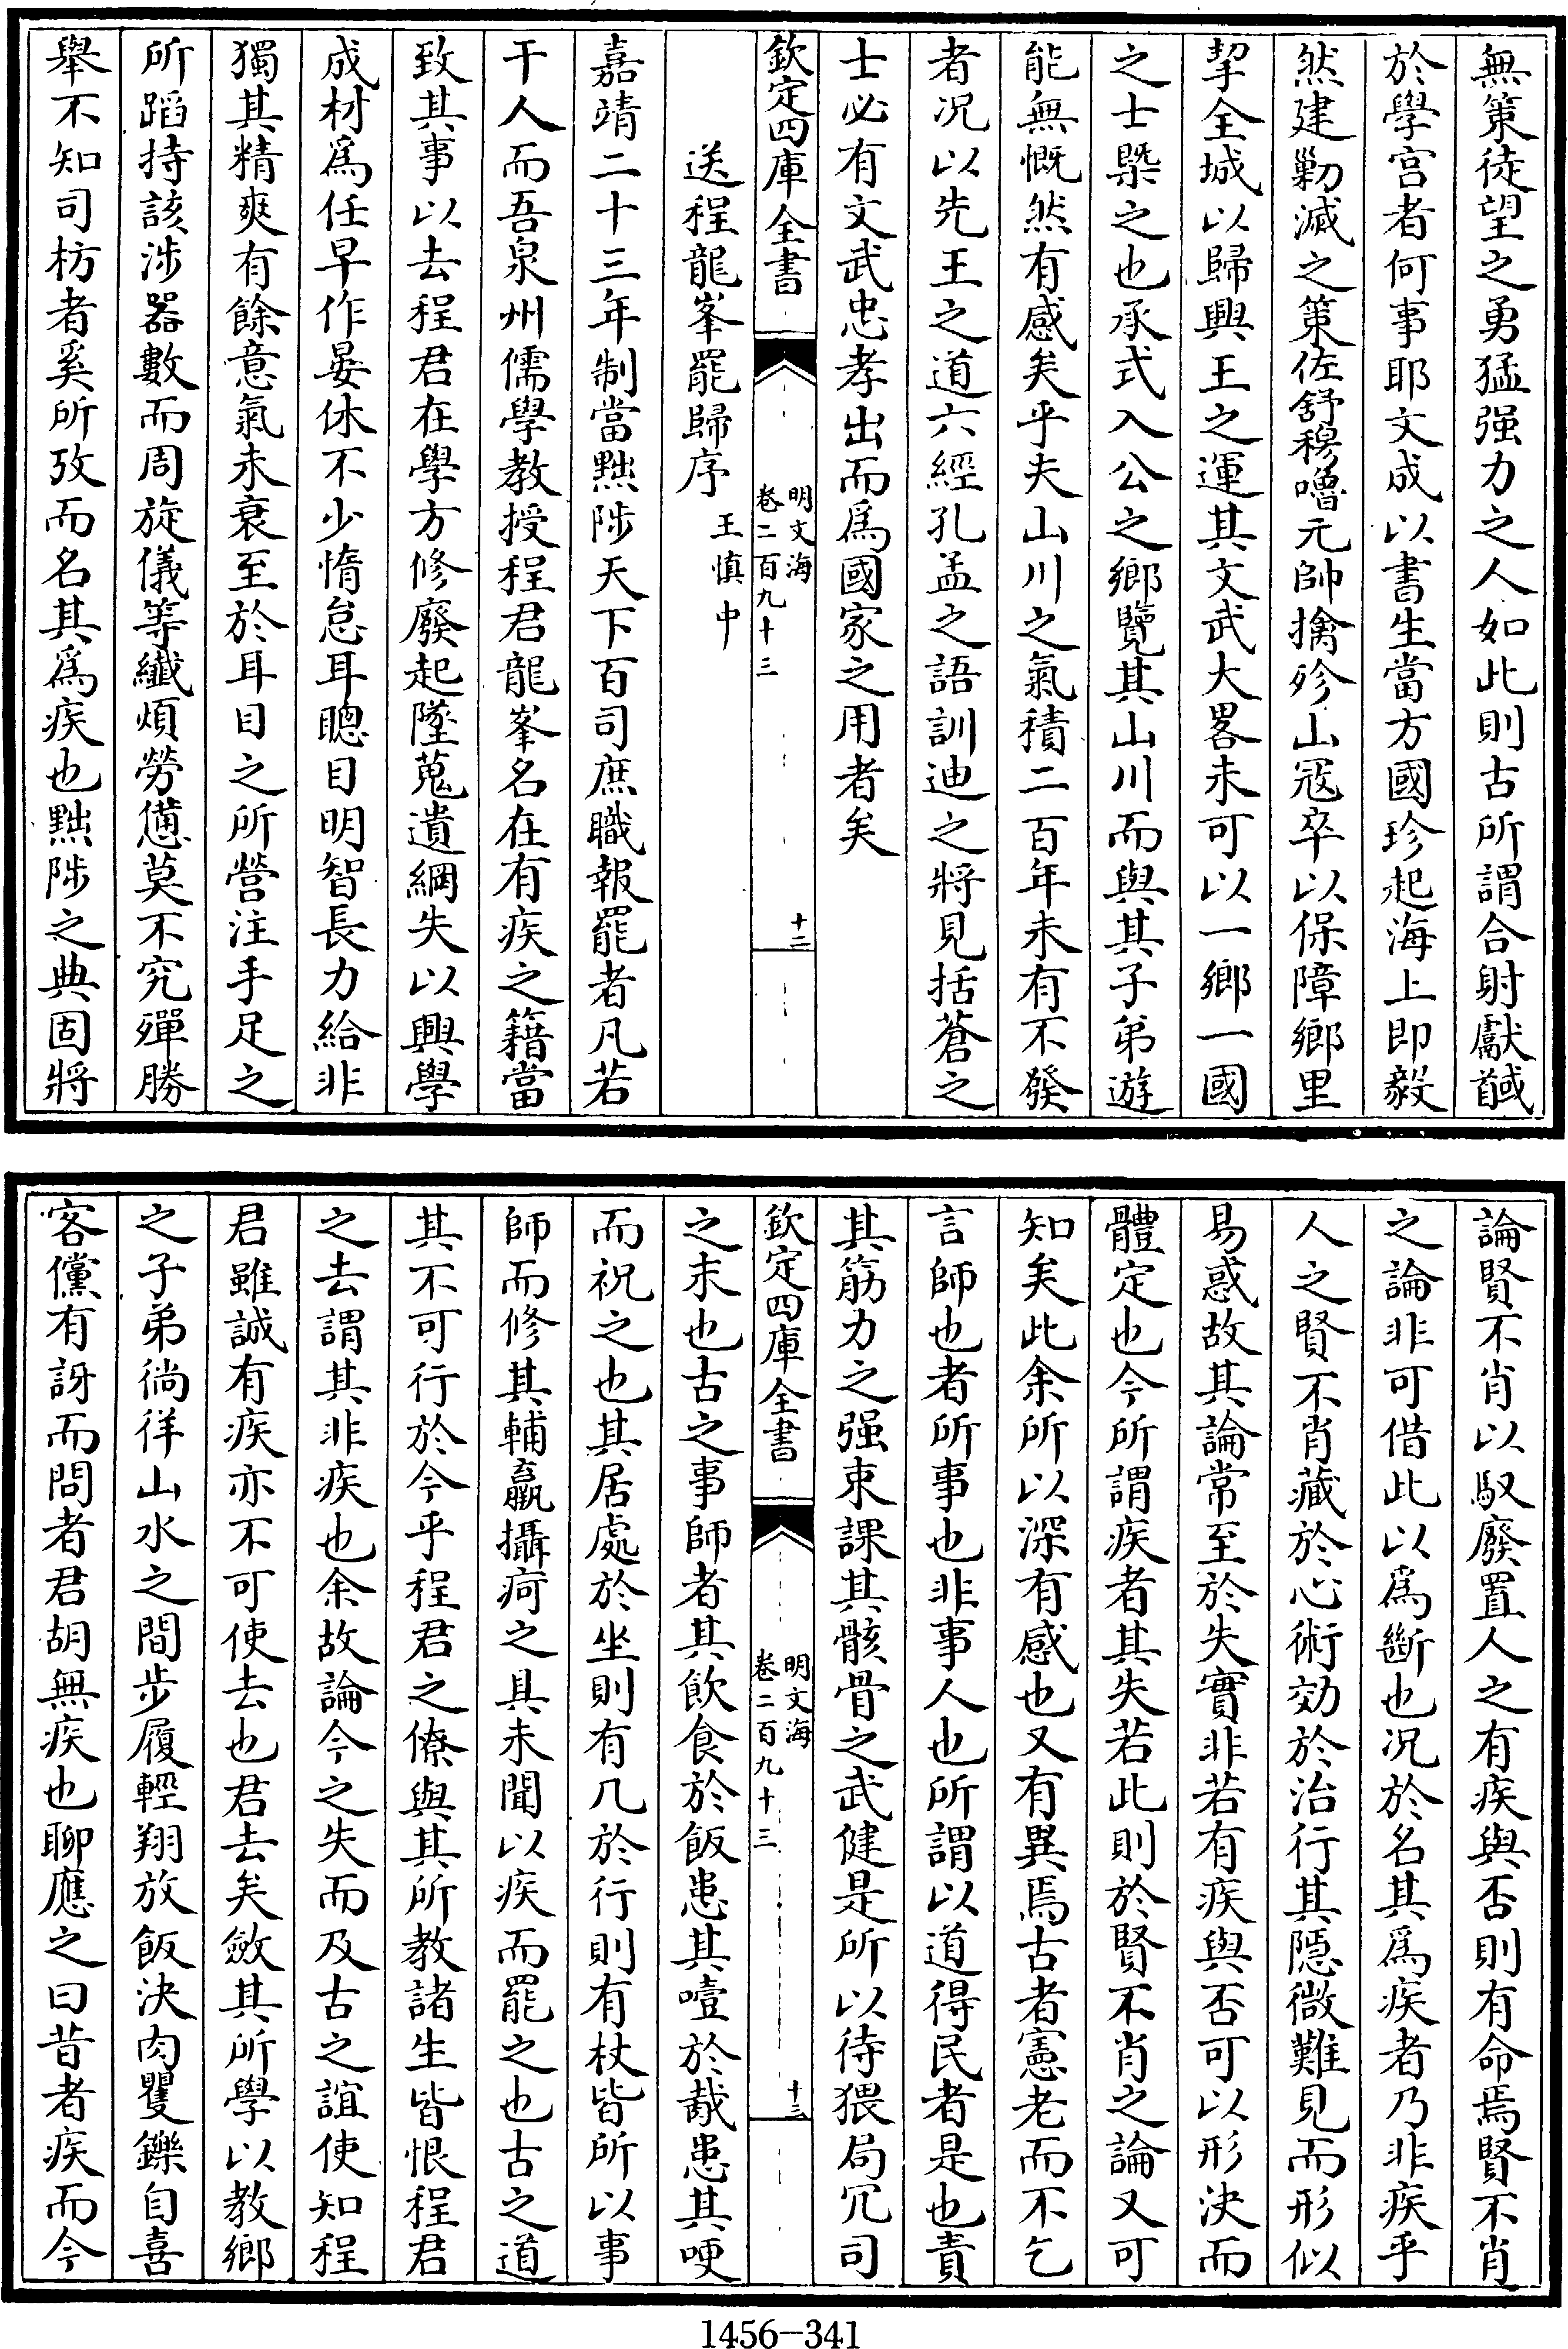 無策徒望之勇猛强力之人如此則古所謂合射獻馘
於學宫者何事耶文成以書生當方國珍起海上即毅
然建勦滅之策佐舒穆嚕元帥擒殄山宼卒以保障鄉里
挈全城以歸興王之運其文武大畧未可以一鄉一國
之士槩之也承式入公之鄉覽其山川而與其子弟遊
能無慨然有感矣乎夫山川之氣積二百年未有不發
者况以先王之道六經孔孟之語訓迪之將見括蒼之
士必有文武忠孝出而爲國家之用者矣
欽定四庫全書
明文海
卷二百九十三
十二
送程龍峯罷歸序
王慎中
嘉靖二十三年制當黜陟天下百司庶職報罷者凡若
干人而吾泉州儒學教授程君龍峯名在有疾之籍當
致其事以去程君在學方修廢起墜蒐遺綱失以興學
成材爲任早作晏休不少惰怠耳聰目明智長力給非
獨其精爽有餘意氣未衰至於耳目之所營注手足之
所蹈持該涉器數而周旋儀等纖煩勞憊莫不究殫勝
舉不知司枋者奚所攷而名其爲疾也黜陟之典固將
論賢不肖以馭廢置人之有疾與否則有命焉賢不肖
之論非可借此以爲斷也况於名其爲疾者乃非疾乎
人之賢不肖藏於心術効於治行其隱微難見而形似
易惑故其論常至於失實非若有疾與否可以形決而
體定也今所謂疾者其失若此則於賢不肖之論又可
知矣此余所以深有感也又有異焉古者憲老而不乞
言師也者所事也非事人也所謂以道得民者是也責
其筋力之强束課其骸骨之武健是所以待猥局冗司
欽定四庫全書
明文海
卷二百九十三
十三
之末也古之事師者其飲食於飯患其噎於胾患其哽
而祝之也其居處於坐則有几於行則有杖皆所以事
師而修其輔羸攝痾之具未聞以疾而罷之也古之道
其不可行於今乎程君之僚與其所教諸生皆恨程君
之去謂其非疾也余故論今之失而及古之誼使知程
君雖誠有疾亦不可使去也君去矣斂其所學以教鄉
之子弟徜徉山水之間步履輕翔放飯決肉矍鑠自喜
客儻有訝而問者君胡無疾也聊應之曰昔者疾而今
1456-341